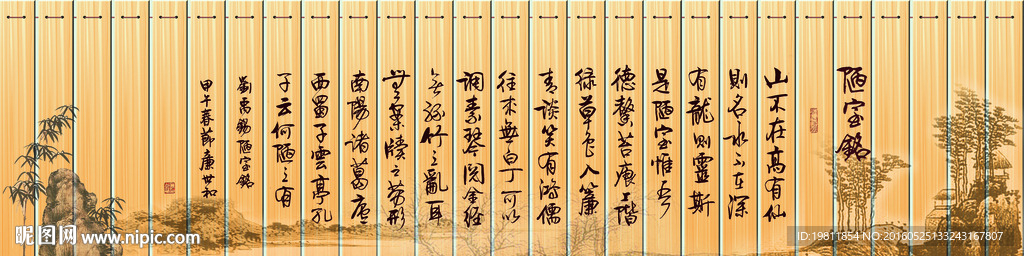 陋室銘
山不在高有仙
則名水不在深
有龍則靈斯
是陋室惟吾
德馨苔痕上階
绿草色入簾
青談笑有鴻儒
往來無白丁可以
調素琴閱金經
無絲竹之亂耳
無案牘之勞形
南陽諸葛廬
西蜀子雲亭孔
子云何陋之有
劉禹錫陋室銘
甲午春節廉世和
昵图网 www.nipic.com
ID:19811854 NO:20160525133243167807